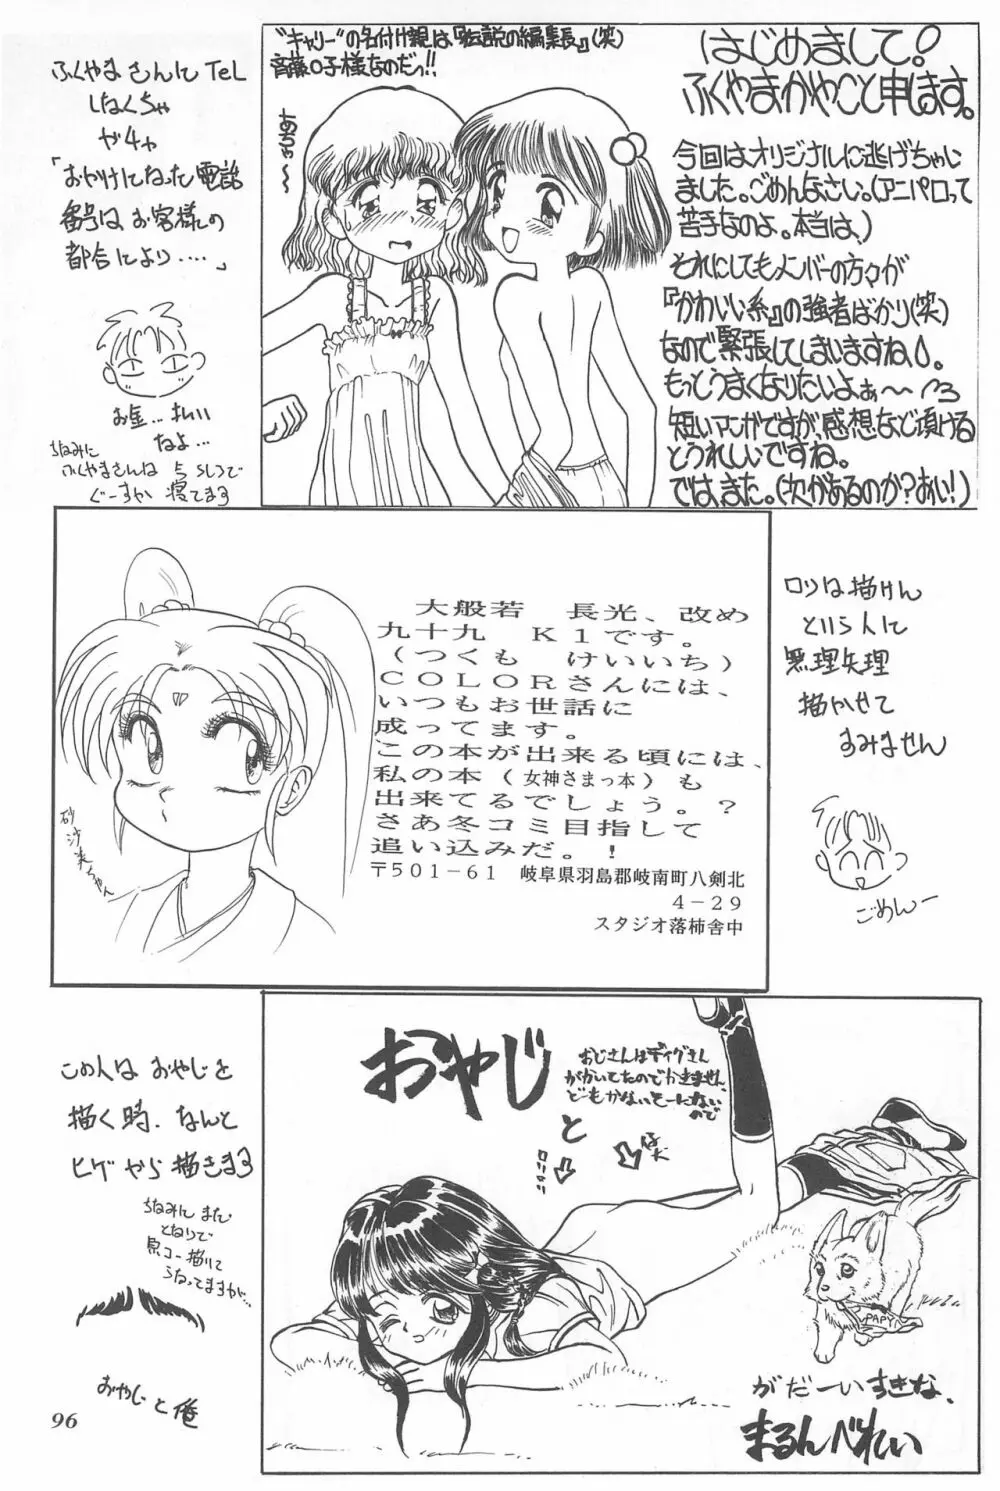 "キャリー"の名付け親は『伝説の編集長』(笑)
斉藤O子様なのだっ!!
あちゃ〜
はじめまして!
ふくやまかやこと申します。
今回は、オリジナルに逃げちゃい
ました。ごめんなさい。(アニパロって
苦手なのよ。本当は、)
それにしてもメンバーの方々が
『かわいい系』の強者ばかり(笑)
なので緊張してしまいますね。
もっとうまくなりたいよぉ〜
短いマンガですが、感想など頂ける
とうれしいですね。
では、また。(次があるのか?おい!)
ふくやまさんにTeL
しなくちゃ
ガチャ
「おかけになった電話
番号は お客様の
都合により・・・・」
お金…払い
なよ…
ちなみに
ふくやまさんは うしろで
ぐーすか 寝てます
大般若 長光、改め
九十九 K1です。
(つくも けいいち)
COLORさんには、
いつもお世話に
成ってます。
この本が出来る頃には、
私の本(女神さまっ本)も
出来てるでしょう。?
さあ冬コミ目指して
追い込みだ。!
〒501-61 岐阜県羽島郡岐南町八剣北
4-29
スタジオ落柿舎中
砂沙美ちゃん
ロリは描けん
という人に
無理矢理
描かせて
すみません
ごめんー
この人は おやじを
描く時、なんと
ヒゲから描きます
ちなみに また
となりで
うなってますが…
おやじと俺
おやじ
と
ロリリリ
おじさんはディグさん
がかいてたのでかきません
ので
PAPY
がだーいすきな、
まるんべれい
96